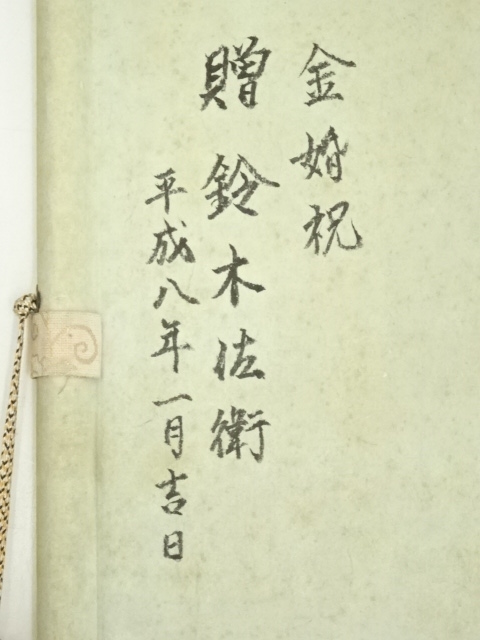 金婚祝
贈鈴木法衛
平成八年一月吉日